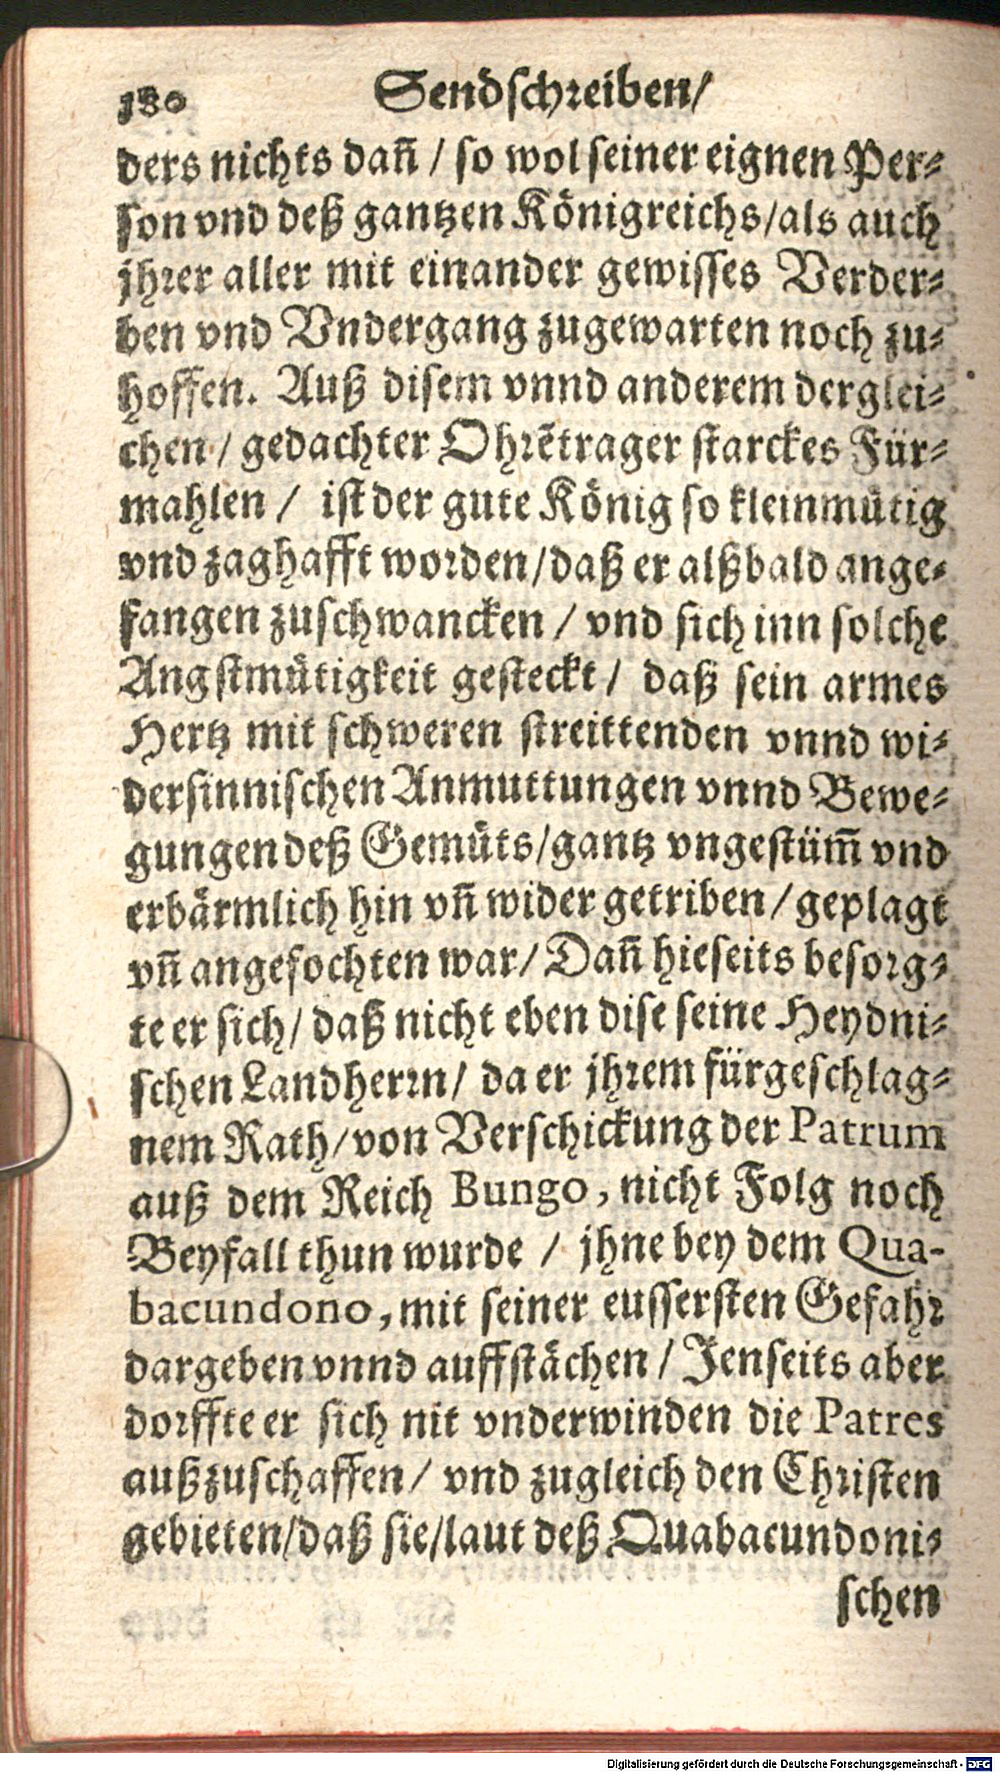 180 Sendschreiben/
ders nichts dañ / so wol seiner eignen Per⸗
son vnd deß gantzen Königreichs/als auch
jhrer aller mit einander gewisses Verder⸗
ben vnd Vndergang zugewarten noch zu⸗
hoffen. Auß disem vnnd anderem derglei⸗
chen / gedachter Ohrẽtrager starckes Für⸗
mahlen / ist der gute König so kleinmütig
vnd zaghafft worden/daß er alßbald ange⸗
fangen zuschwancken / vnd sich inn solche
Angstmütigkeit gesteckt / daß sein armes
Hertz mit schweren streittenden vnnd wi⸗
dersinnischen Anmuttungen vnnd Bewe⸗
gungen deß Gemüts/gantz vngestüm̃ vnd
erbärmlich hin vñ wider getriben / geplagt
vñ angefochten war/ Dañ hieseits besorg⸗
te er sich/ daß nicht eben dise seine Heydni⸗
schen Landherrn/ da er jhrem fürgeschlag⸗
nem Rath/von Verschickung der Patrum
auß dem Reich Bungo, nicht Folg noch
Beyfall thun wurde / jhne bey dem Qua-
bacundono, mit seiner eussersten Gefahr
dargeben vnnd auffstächen / Jenseits aber
dorffte er sich nit vnderwinden die Patres
außzuschaffen/ vnd zugleich den Christen
gebieten/daß sie/laut deß Quabacundoni⸗
schen
Digitalisierung gefördert durch die Deutsche Forschungsgemeinschaft - DFG